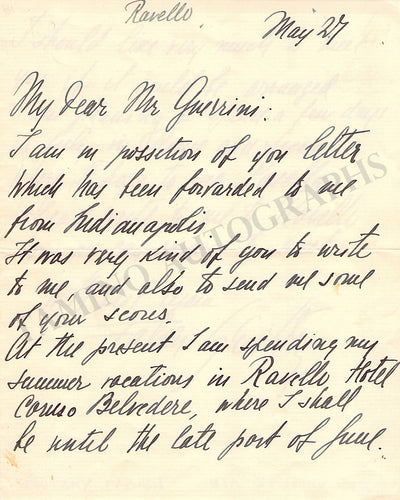 Ravello
May 27
My Dear Mr Guerrini:
I am in possition of you letter
which has been forwarded to me
from Indianapolis.
It was very kind of you to write
to me and also to send me some
of your scores.
At the present I am spending my
summer vacations in Ravello Hotel
Caruso Belvedere, where I shall
be until the late part of June.
TAMINO AUTOGRAPHS